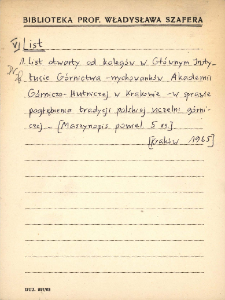 BIBLIOTEKA PROF. WŁADYSŁAWA SZAFERA
VI List
1. List otwarty od kolegów w Głównym Insty-
tucie Górnictwa - wychowanków Akademii
Górniczo-Hutniczej w Krakowie - w sprawie
pogłębienia tradycji polskiej uczelni górni-
czej - [Maszynopis powiel. 5 es]
[Kraków 1965]